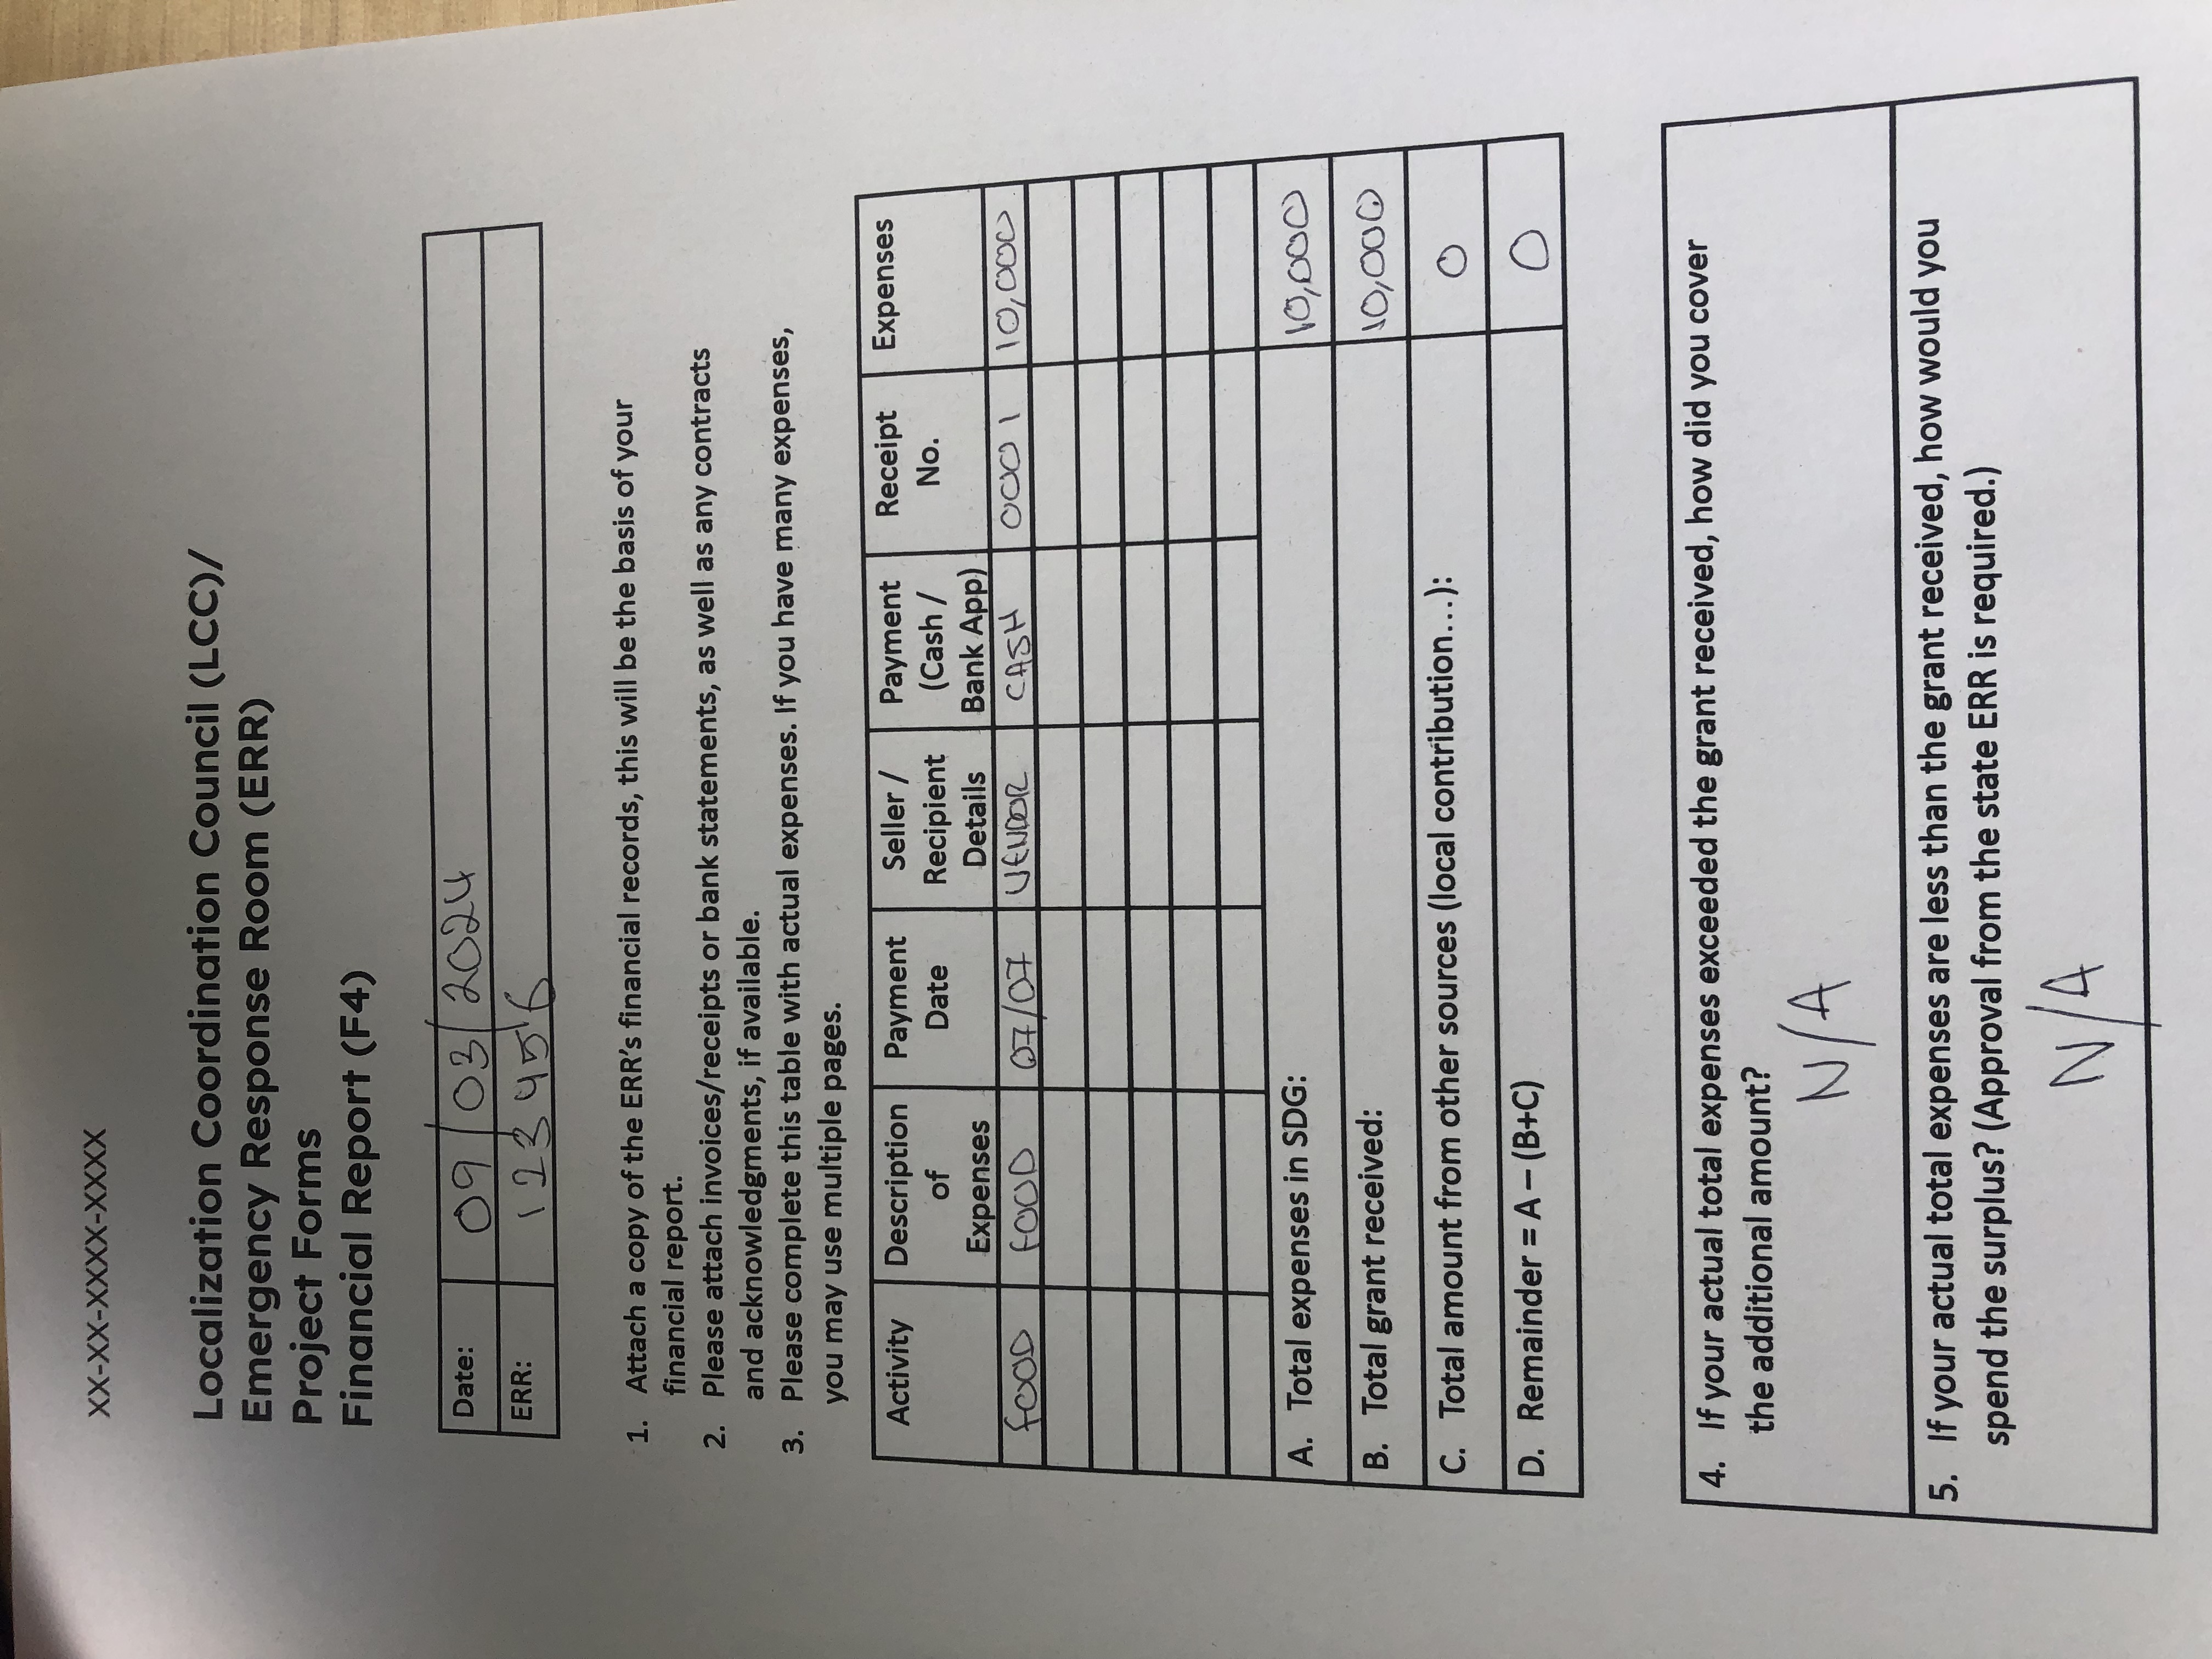 XX-XX-XXXX-XXXX
Localization Coordination Council (LCC)/
Emergency Response Room (ERR)
Project Forms
Financial Report (F4)
Date: 09/03/2024
ERR: 123456
1. Attach a copy of the ERR’s financial records, this will be the basis of your
financial report.
2. Please attach invoices/receipts or bank statements, as well as any contracts
and acknowledgments, if available.
3. Please complete this table with actual expenses. If you have many expenses,
you may use multiple pages.
Activity Description of Expenses Payment Date Seller / Recipient Details Payment (Cash / Bank App) Receipt No. Expenses
FOOD FOOD 07/07 VENDOR CASH 0001 10,000
A. Total expenses in SDG: 10,000
B. Total grant received: 10,000
C. Total amount from other sources (local contribution...): 0
D. Remainder = A – (B+C) 0
4. If your actual total expenses exceeded the grant received, how did you cover
the additional amount?
N/A
5. If your actual total expenses are less than the grant received, how would you
spend the surplus? (Approval from the state ERR is required.)
N/A